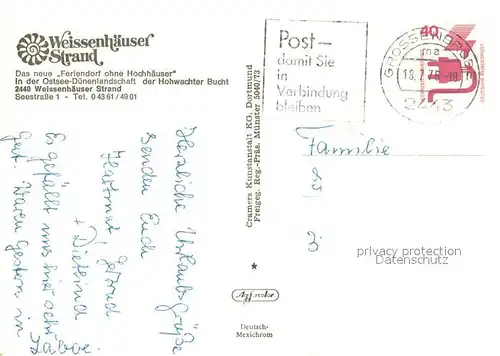 Weissenhäuser
Strand
Das neue „Feriendorf ohne Hochhäuser"
In der Ostsee-Dünenlandschaft der Hohwachter Bucht
2440 Weissenhäuser Strand
Seestraße 1 - Tel. 04361/4901
Herzliche Urlaubsgrüße
senden Euch
Hartmut, Gertrud
+ Dietlind
Es gefällt uns hier sehr
gut. Waren gestern in
Laboe.
Cramers Kunstanstalt KG, Dortmund
Freigeg. Reg.-Präs. Münster 5040/73
Agfacolor
Deutsch-
Mexichrom
Post –
damit Sie
in
Verbindung
bleiben
GROSSENBRODE
2443
40
DEUTSCHE BUNDESPOST
Familie
privacy protection
Datenschutz